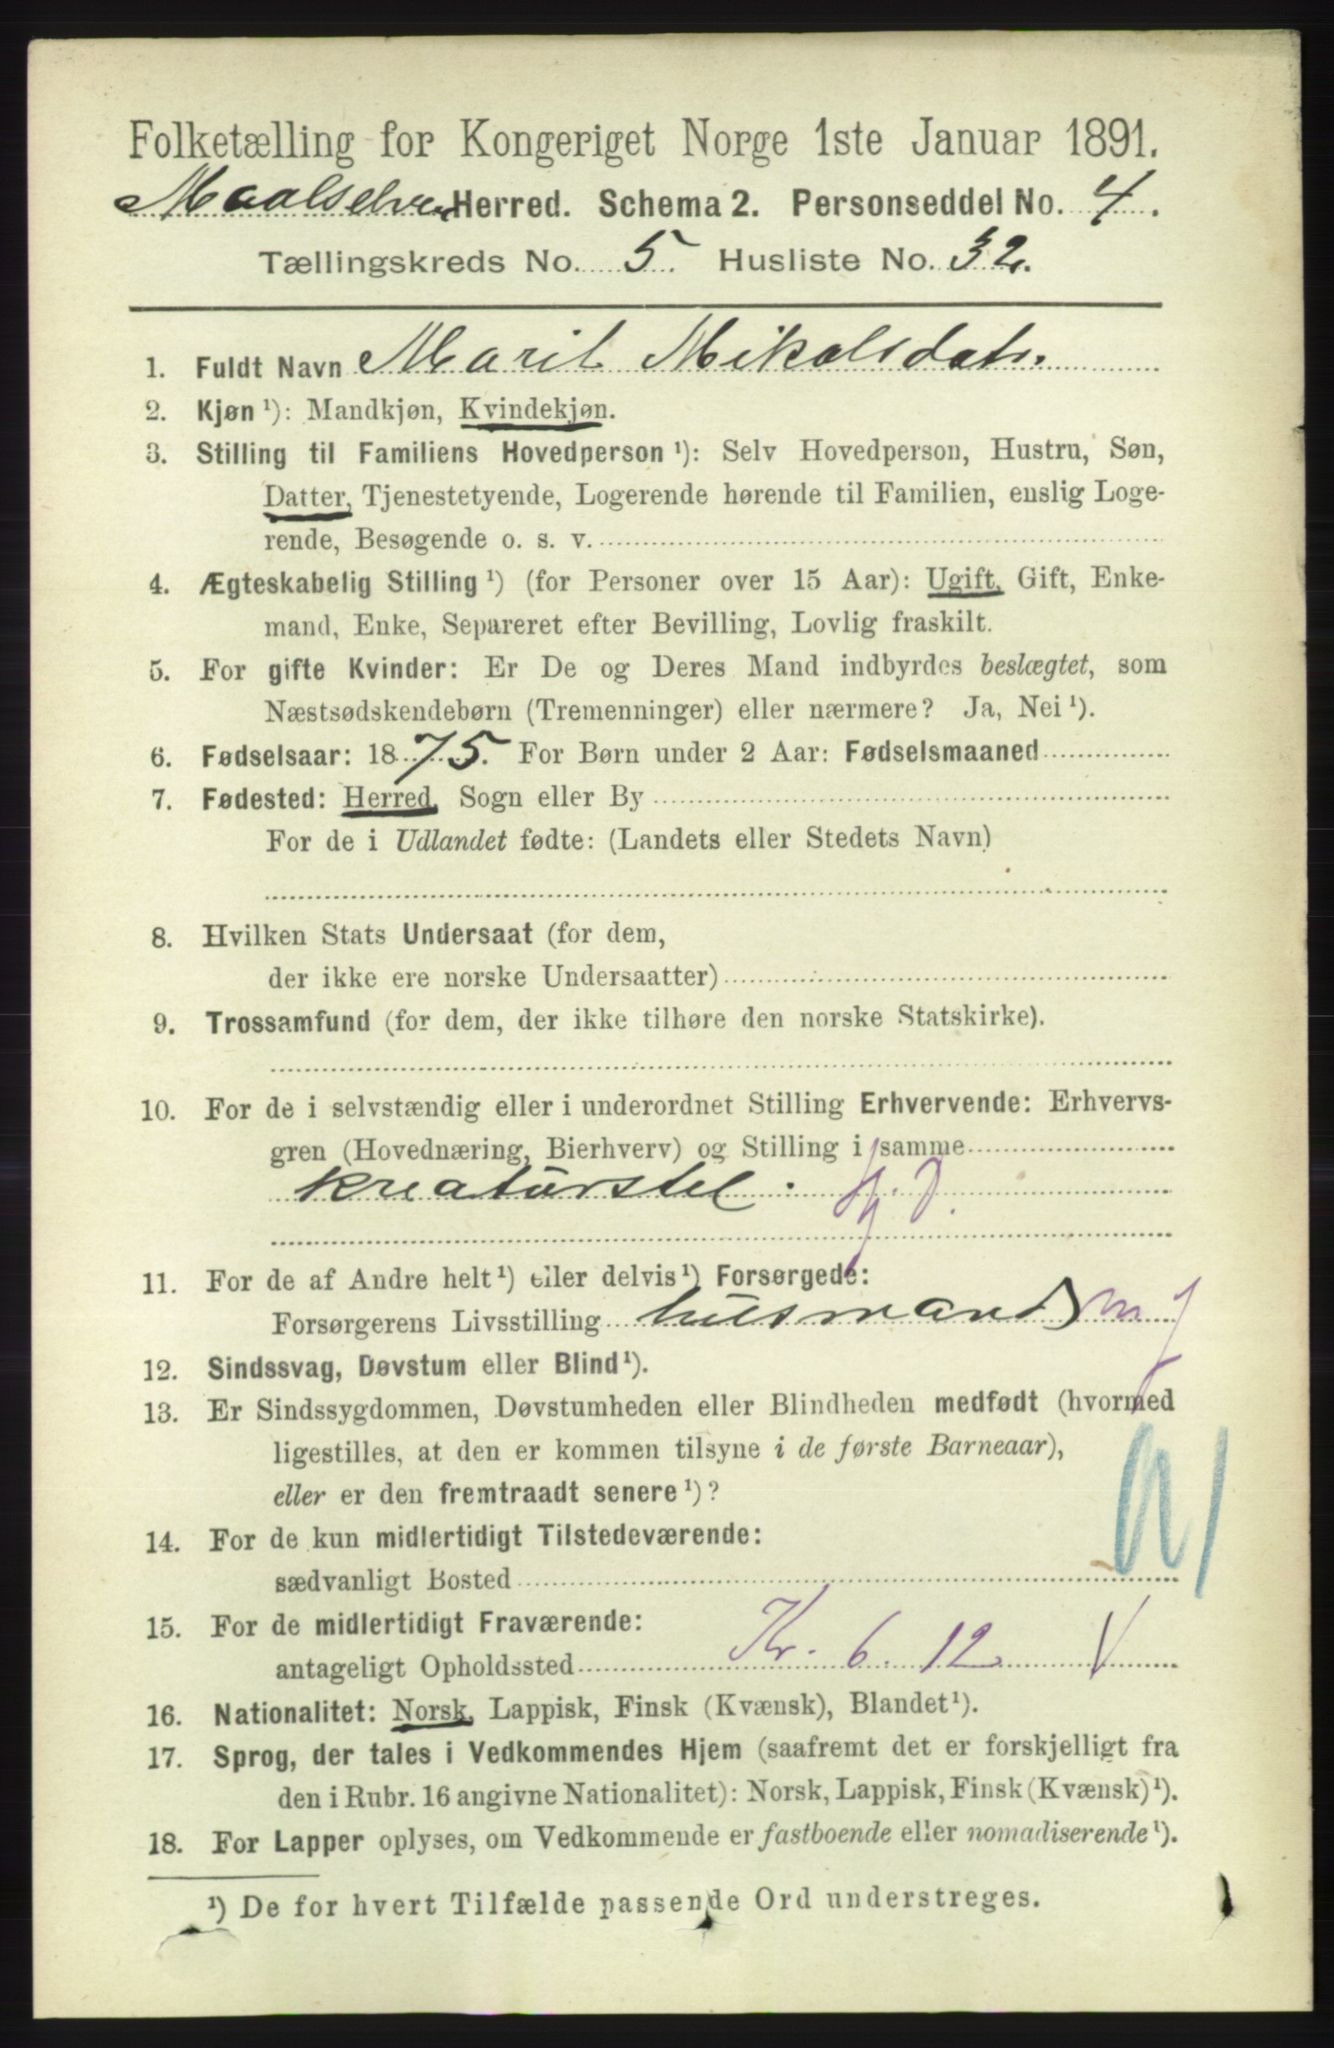 Folketælling for Kongeriget Norge 1ste Januar 1891.
Maalselven Herred. Schema 2. Personseddel No. 4.
Tællingskreds No. 5. Husliste No. 32.
1. Fuldt Navn Marit Mikalsdatr.
2. Kjøn ¹): Mandkjøn, Kvindekjøn.
3. Stilling til Familiens Hovedperson ¹): Selv Hovedperson, Hustru, Søn,
Datter, Tjenestetyende, Logerende hørende til Familien, enslig Loge-
rende, Besøgende o. s. v.
4. Ægteskabelig Stilling ¹) (for Personer over 15 Aar): Ugift, Gift, Enke-
mand, Enke, Separeret efter Bevilling, Lovlig fraskilt.
5. For gifte Kvinder: Er De og Deres Mand indbyrdes beslægtet, som
Næstsødskendebørn (Tremenninger) eller nærmere? Ja, Nei ¹).
6. Fødselsaar: 1875. For Børn under 2 Aar: Fødselsmaaned
7. Fødested: Herred, Sogn eller By
For de i Udlandet fødte: (Landets eller Stedets Navn)
8. Hvilken Stats Undersaat (for dem,
der ikke ere norske Undersaatter)
9. Trossamfund (for dem, der ikke tilhøre den norske Statskirke).
10. For de i selvstændig eller i underordnet Stilling Erhvervende: Erhvervs-
gren (Hovednæring, Bierhverv) og Stilling i samme
kreaturstel.
11. For de af Andre helt ¹) eller delvis ¹) Forsørgede:
Forsørgerens Livsstilling husmand
12. Sindssvag, Døvstum eller Blind ¹).
13. Er Sindssygdommen, Døvstumheden eller Blindheden medfødt (hvormed
ligestilles, at den er kommen tilsyne i de første Barneaar),
eller er den fremtraadt senere ¹)?
14. For de kun midlertidigt Tilstedeværende:
sædvanligt Bosted
15. For de midlertidigt Fraværende:
antageligt Opholdssted Kr. 6. 12
16. Nationalitet: Norsk, Lappisk, Finsk (Kvænsk), Blandet ¹).
17. Sprog, der tales i Vedkommendes Hjem (saafremt det er forskjelligt fra
den i Rubr. 16 angivne Nationalitet): Norsk, Lappisk, Finsk (Kvænsk) ¹).
18. For Lapper oplyses, om Vedkommende er fastboende eller nomadiserende ¹).
¹) De for hvert Tilfælde passende Ord understreges.